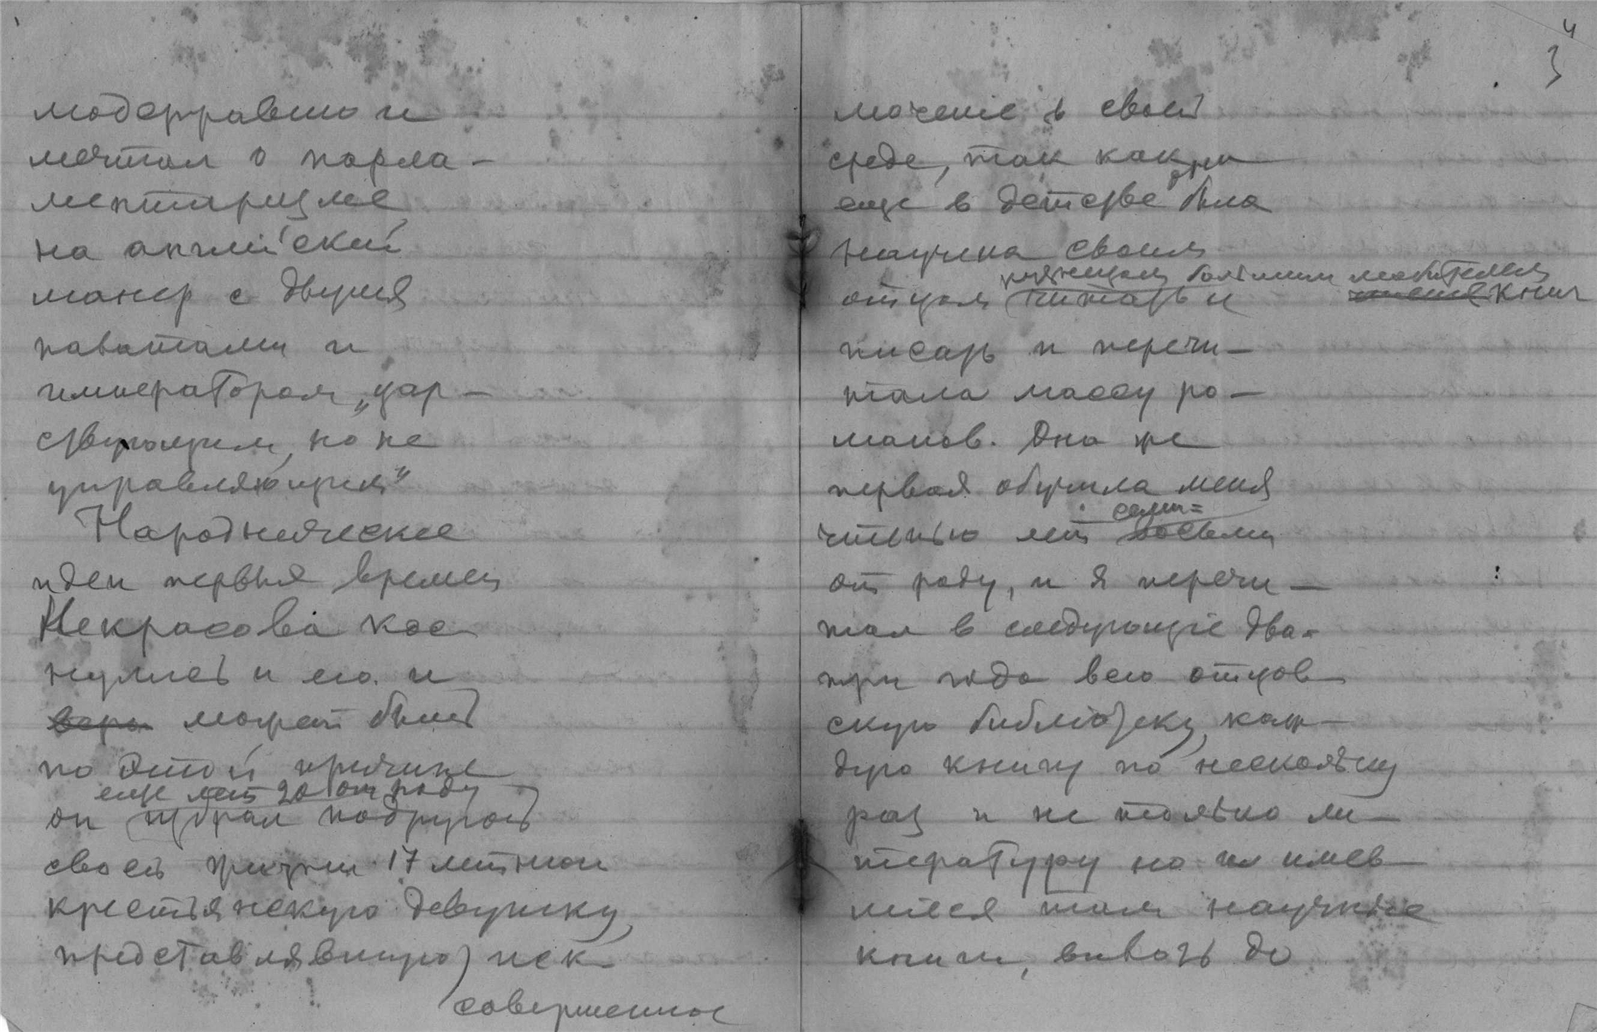 мечтал о парла-
ментаризме
на англiйский
манер с двумя
палатами и
императором „цар-
ствующим, но не
управляющим“
Народническiе
идеи первых времен
Некрасова кос-
нулись и его и
может быть
по этой причине
еще лет 20 от роду
он избрал подругой
своей жизни 17 летнюю
крестьянскую девушку,
представлявшую иск-
совершенное
4
3
лючение в своей
среде, так как
еще в детстве была
научена своим
кузнецом большим любителем
отцом читать и книг
писать и перечи-
тала массу ро-
манов. Она же
первая обучила меня
семи=
чтенью лет восьми
от роду, и я перечи-
тал в следующiе два-
три года всю отцов-
скую библiотеку, каж-
дую книгу по нескольку
раз и не только ли-
тературу но и имев-
шiеся там научные
книги, вплоть до